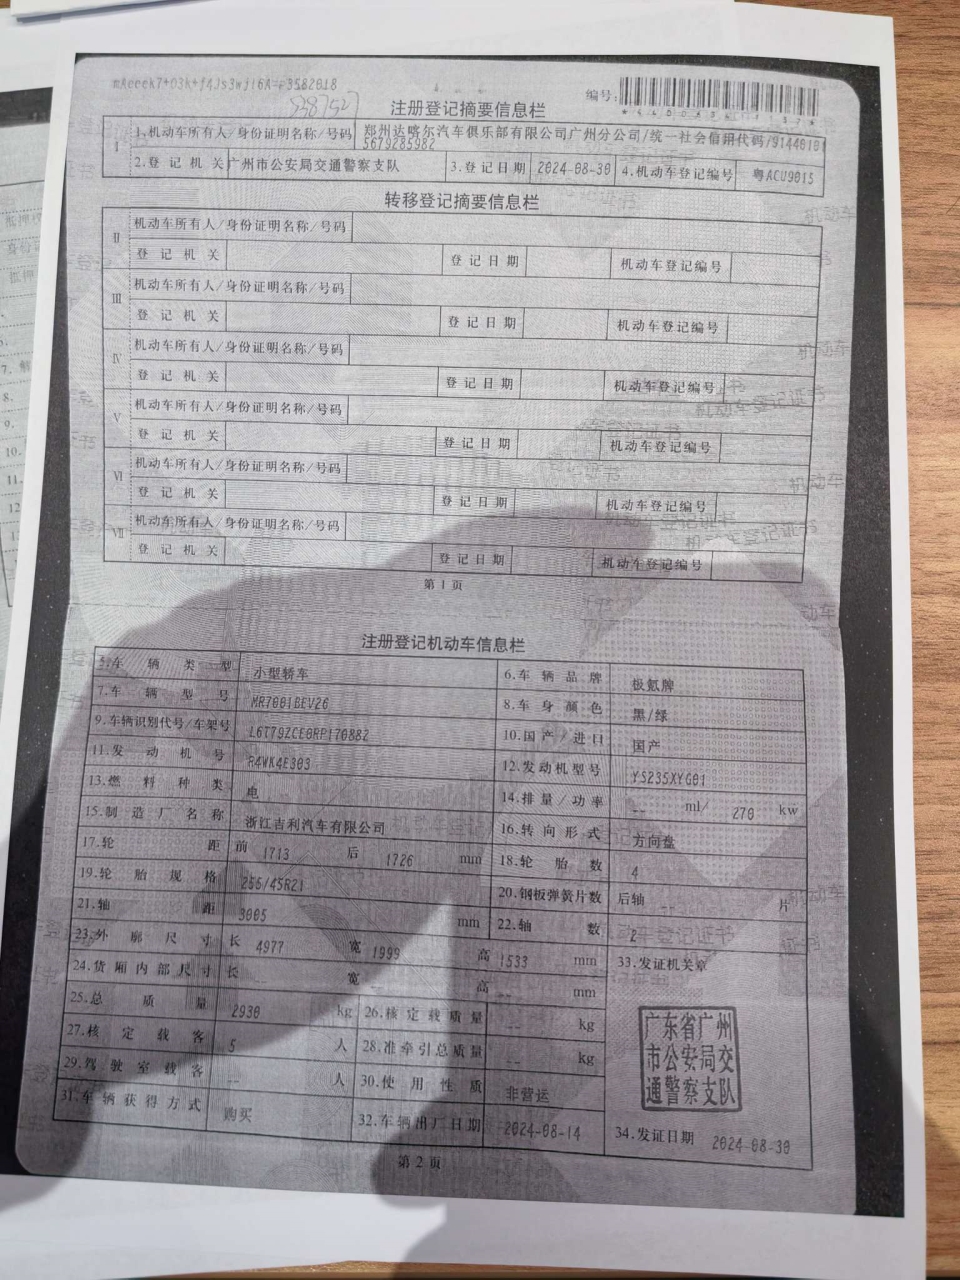 注册登记摘要信息栏
编号:
1.机动车所有人/身份证明名称/号码 郑州达喀尔汽车俱乐部有限公司广州分公司/统一社会信用代码/91440101
5679285982
Ⅰ
2.登记机关 广州市公安局交通警察支队 3.登记日期 2024-08-30 4.机动车登记编号 粤ACU9015
转移登记摘要信息栏
Ⅱ 机动车所有人/身份证明名称/号码
登记机关 登记日期 机动车登记编号
Ⅲ 机动车所有人/身份证明名称/号码
登记机关 登记日期 机动车登记编号
Ⅳ 机动车所有人/身份证明名称/号码
登记机关 登记日期 机动车登记编号
Ⅴ 机动车所有人/身份证明名称/号码
登记机关 登记日期 机动车登记编号
Ⅵ 机动车所有人/身份证明名称/号码
登记机关 登记日期 机动车登记编号
Ⅶ 机动车所有人/身份证明名称/号码
登记机关 登记日期 机动车登记编号
第1页
注册登记机动车信息栏
5.车辆类型 小型轿车 6.车辆品牌 极氪牌
7.车辆型号 MR7001BEV26 8.车身颜色 黑/绿
9.车辆识别代号/车架号 L6T79ZCE0RP170882 10.国产/进口 国产
11.发动机号 R4WK4E303 12.发动机型号 YS235XYG01
13.燃料种类 电 14.排量/功率 -- ml/ 270 kw
15.制造厂名称 浙江吉利汽车有限公司 16.转向形式 方向盘
17.轮距 前 1713 后 1726 mm 18.轮胎数 4
19.轮胎规格 255/45R21 20.钢板弹簧片数 后轴 -- 片
21.轴距 3005 mm 22.轴数 2
23.外廓尺寸 长 4977 宽 1999 高 1533 mm 33.发证机关章
24.货厢内部尺寸 长 -- 宽 -- 高 -- mm
25.总质量 2930 kg 26.核定载质量 -- kg
27.核定载客 5 人 28.准牵引总质量 -- kg
29.驾驶室载客 -- 人 30.使用性质 非营运
31.车辆获得方式 购买 32.车辆出厂日期 2024-08-14
广东省广州
市公安局交
通警察支队
34.发证日期 2024-08-30
第2页